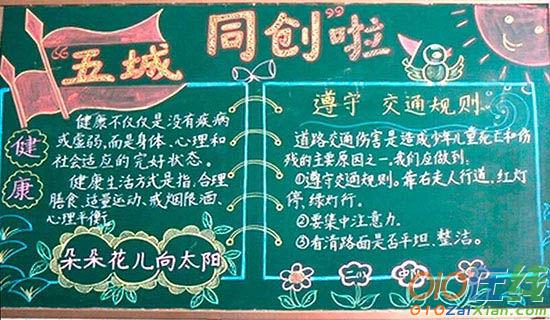 “五城同创”啦
健康
健康不仅仅是没有疾病
或虚弱,而是身体、心理和
社会适应的完好状态。
健康生活方式是指,合理
膳食、适量运动、戒烟限酒、
心理平衡。
朵朵花儿向太阳
遵守 交通规则。
道路交通伤害是造成少年儿童死亡和伤
残的主要原因之一,我们应做到:
①遵守交通规则。靠右走人行道,红灯
停,绿灯行。
②要集中注意力。
③看清路面是否平坦、整洁。
二(
010在线
010zaixian.com